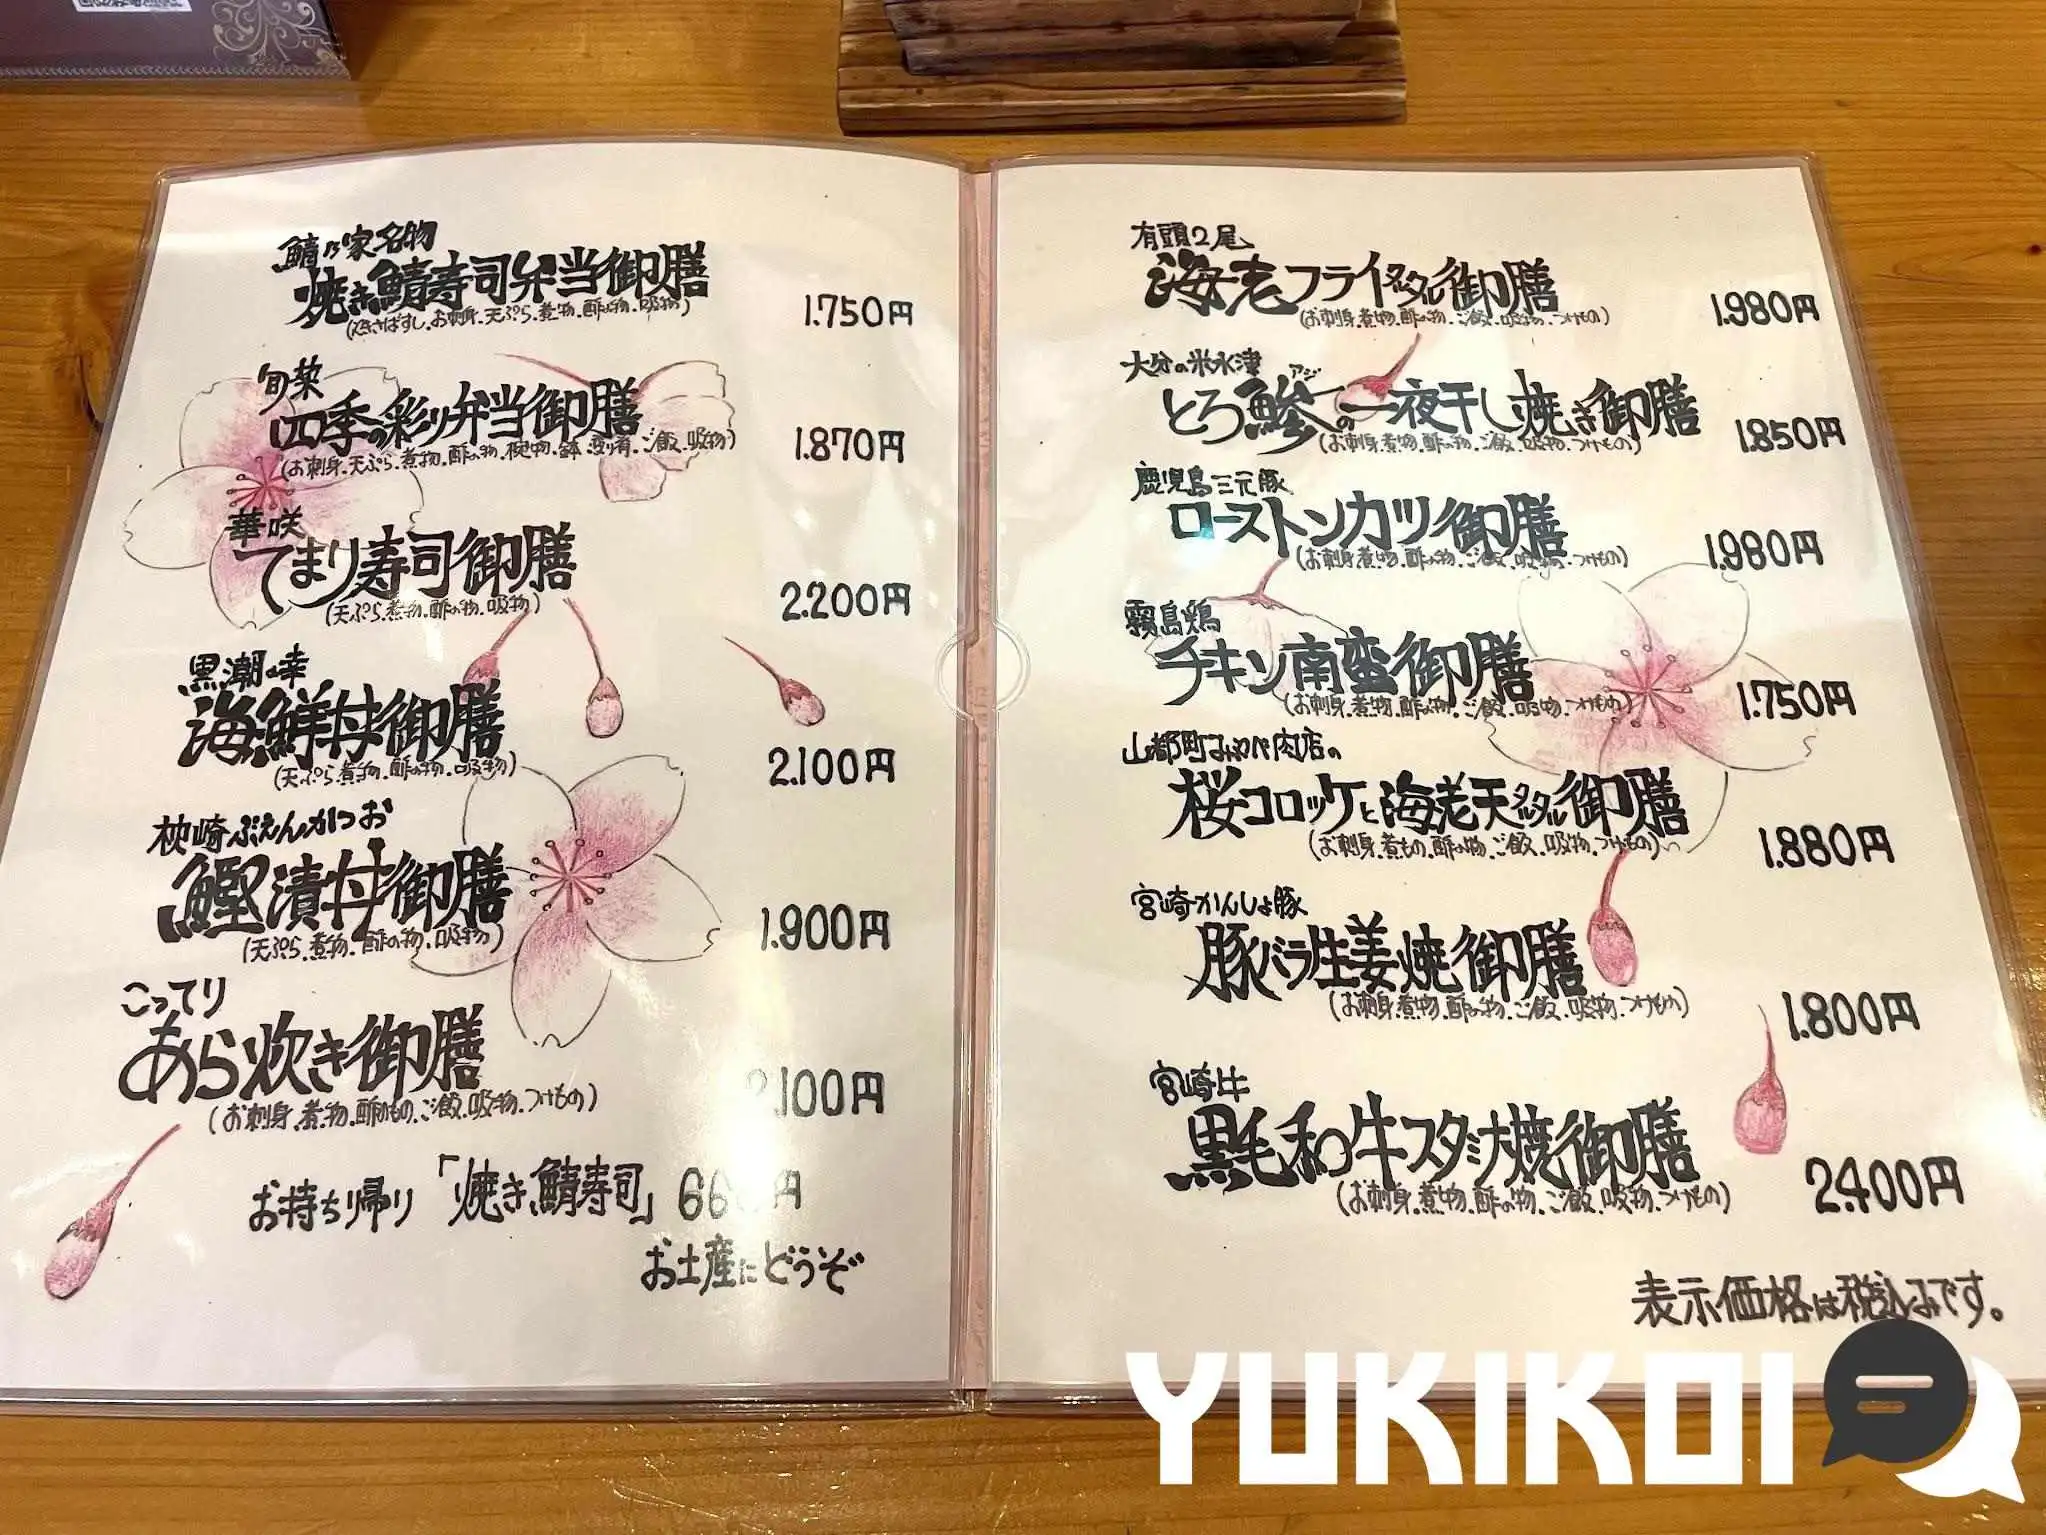 鯖乃家名物
焼き鯖寿司弁当御膳
(焼きさばすし.お刺身.天ぷら.煮物.酢の物.吸物)
1.750円
旬菜
四季の彩り弁当御膳
(お刺身.天ぷら.煮物.酢の物.椀物.鉢.変り肴.ご飯.吸物)
1.870円
華咲
てまり寿司御膳
(天ぷら.煮物.酢の物.吸物)
2.200円
黒潮の幸
海鮮丼御膳
(天ぷら.煮物.酢の物.吸物)
2.100円
枕崎ぶえんかつお
鰹漬丼御膳
(天ぷら.煮物.酢の物.吸物)
1.900円
こってり
あら炊き御膳
(お刺身.煮物.酢のもの.ご飯.吸物.つけもの)
2.100円
お持ち帰り「焼き鯖寿司」
お土産にどうぞ
有頭2尾
海老フライタルタル御膳
(お刺身.煮物.酢の物.ご飯.吸物.つけもの)
1.980円
大分の米水津
とろ鯵の一夜干し焼き御膳
アジ
(お刺身.煮物.酢の物.ご飯.吸物.つけもの)
1.850円
鹿児島三元豚
ローストンカツ御膳
(お刺身.煮物.酢の物.ご飯.吸物.つけもの)
1.980円
霧島鶏
チキン南蛮御膳
(お刺身.煮物.酢の物.ご飯.吸物.つけもの)
1.750円
山都町みやべ肉店の
桜コロッケと海老天タルタル御膳
(お刺身.煮もの.酢の物.ご飯.吸物.つけもの)
1.880円
宮崎かんしょ豚
豚バラ生姜焼御膳
(お刺身.煮物.酢の物.ご飯.吸物.つけもの)
1.800円
宮崎牛
黒毛和牛スタミナ焼御膳
(お刺身.煮物.酢の物.ご飯.吸物.つけもの)
2.400円
表示価格は税込みです。
YUKIKOI